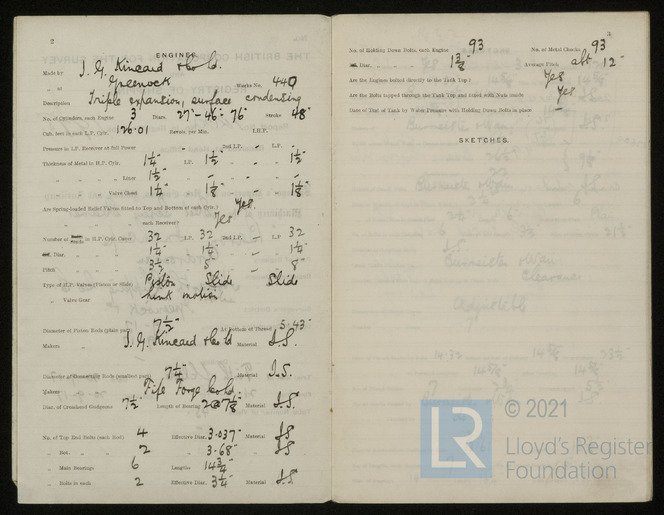 2
ENGINES.
Made by J. G. Kincaid & Co Ld.
„ at Greenock Works No. 440
Description Triple expansion, surface condensing
No. of Cylinders, each Engine 3 Diars. 27" - 46" - 76" Stroke 48"
Cub. feet in each L.P. Cylr. 126.01 Revns. per Min. I.H.P.
Pressure in I.P. Receiver at full Power 2nd I.P. „
Thickness of Metal in H.P. Cylr. 1¼" I.P. 1½" „ - „ 1½"
„ „ „ Liner 1½" „ - „ - „ -
„ „ „ Valve Chest 1¼" „ 1⅛" „ - „ 1⅛"
Are Spring-loaded Relief Valves fitted to Top and Bottom of each Cylr.? Yes
„ „ „ each Receiver? Yes
Number of in H.P. Cylr. Cover 32 I.P. 32 2nd I.P. - L.P. 32
Diar. „ 1¼" „ 1¼" „ - „ 1¼"
Pitch „ 3½" „ 8" „ - „ 8"
Type of H.P. Valves (Piston or Slide) Piston Slide Slide
„ Valve Gear Link motion
Diameter of Piston Rods (plain part) 7½" At Bottom of Thread 5.43"
Makers „ J. G. Kincaid & Co Ld Material I.S.
Diameter of Connecting Rods (smallest part) 7¼" Material I.S.
Makers „ Fife Forge Co Ld.
Diar. of Crosshead Gudgeons 7½" Length of Bearing 2@7⅛" Material I.S.
No. of Top End Bolts (each Rod) 4 Effective Diar. 3.037" Material I.S
„ Bot. „ „ 2 „ 3.68" „ I.S
„ Main Bearings 6 Lengths 14¾"
„ Bolts in each 2 Effective Diar. 3¼" Material I.S
3
No. of Holding Down Bolts, each Engine 93 No. of Metal Chocks 93
Diar. 1⅜" Average Pitch abt 12"
Are the Engines bolted directly to the Tank Top? Yes
Are the Bolts tapped through the Tank Top and fitted with Nuts inside Yes
Date of Test of Tank by Water Pressure with Holding Down Bolts in place -
SKETCHES.
LR
© 2021
Lloyd's Register
Foundation